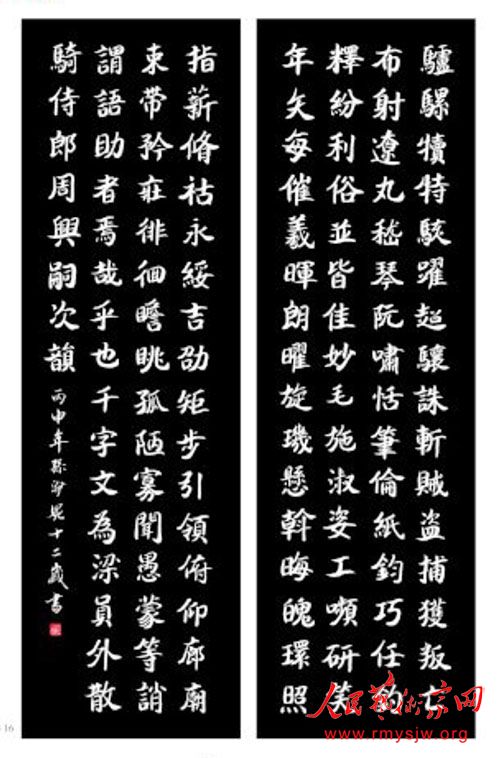 驢騾犢特駭躍超驤誅斬賊盜捕獲叛亡
布射遼丸嵇琴阮嘯恬筆倫紙鈞巧任釣
釋紛利俗並皆佳妙毛施淑姿工嚬研笑
年矢每催羲暉朗曜旋璣懸斡晦魄環照
指薪脩祜永綏吉劭矩步引領俯仰廊廟
束帶矜莊徘徊瞻眺孤陋寡聞愚蒙等誚
謂語助者焉哉乎也千字文為梁員外散
騎侍郎周興嗣次韻
丙申年孫十二歲書
人民藝術家网
www.rmysjw.org
16